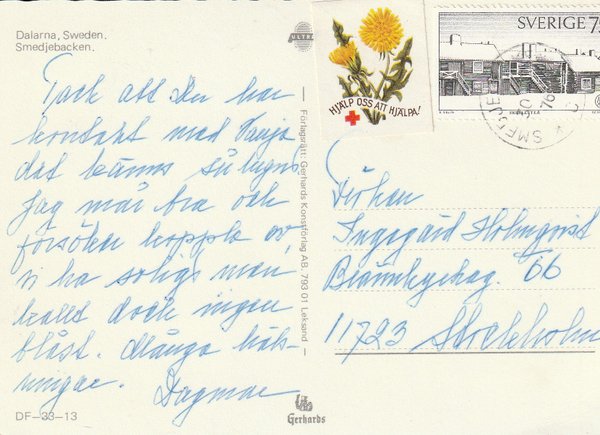 Dalarna, Sweden.
Smedjebacken.
ULTRA
Tack att Du har
kontakt med Vanja
det känns så lugnt
Jag mår bra och
försöker koppla av,
vi ha soligt men
kallt dock ingen
blåst. Många häls-
ningar. Dagmar
DF-33-13
Förlagsrätt: Gerhards Konstförlag AB. 793 01 Leksand
Gerhards
HJÄLP OSS ATT HJÄLPA!
SVERIGE 75
SMEDJE
Fröken
Ingegärd Holmqvist
Brännkyrkag. 66
11723 Stockholm